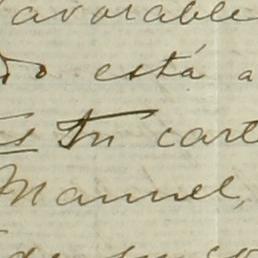 avorable
do está a
es tu cart
Manuel,